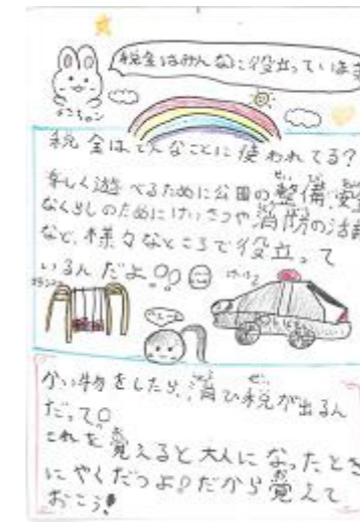 税金はみんなに役立っていま
税金はどんなことに使われてる?
楽しく遊べるために公園の整備、安
なくらしのためにけいさつや消防の活
など、様々なところで役立って
いるんだよ
ブランコ
かい物をしたら、消ひ税が出るん
だって
これを覚えると大人になったとき
にやくだつよ。だから覚えて
おこう!